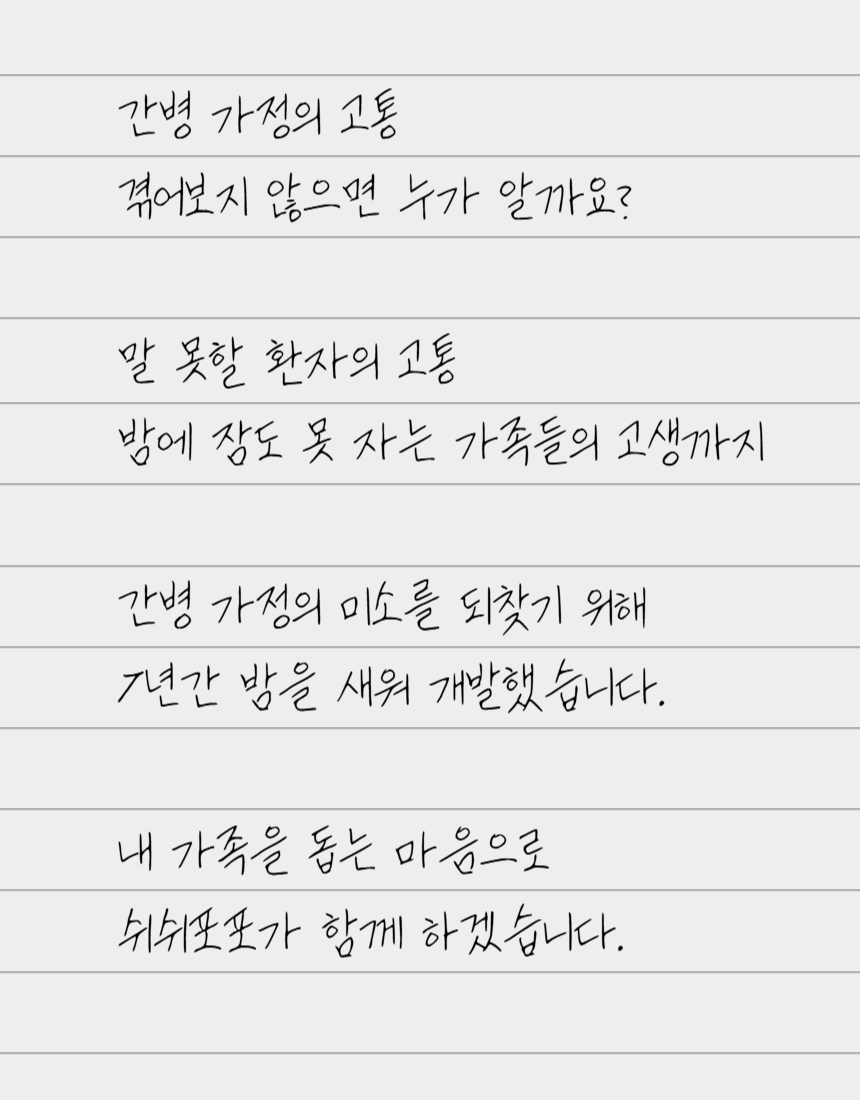 간병 가정의 고통
겪어보지 않으면 누가 알까요?
말 못할 환자의 고통
밤에 잠도 못 자는 가족들의 고생까지
간병 가정의 미소를 되찾기 위해
7년간 밤을 새워 개발했습니다.
내 가족을 돕는 마음으로
쉬쉬포포가 함께 하겠습니다.